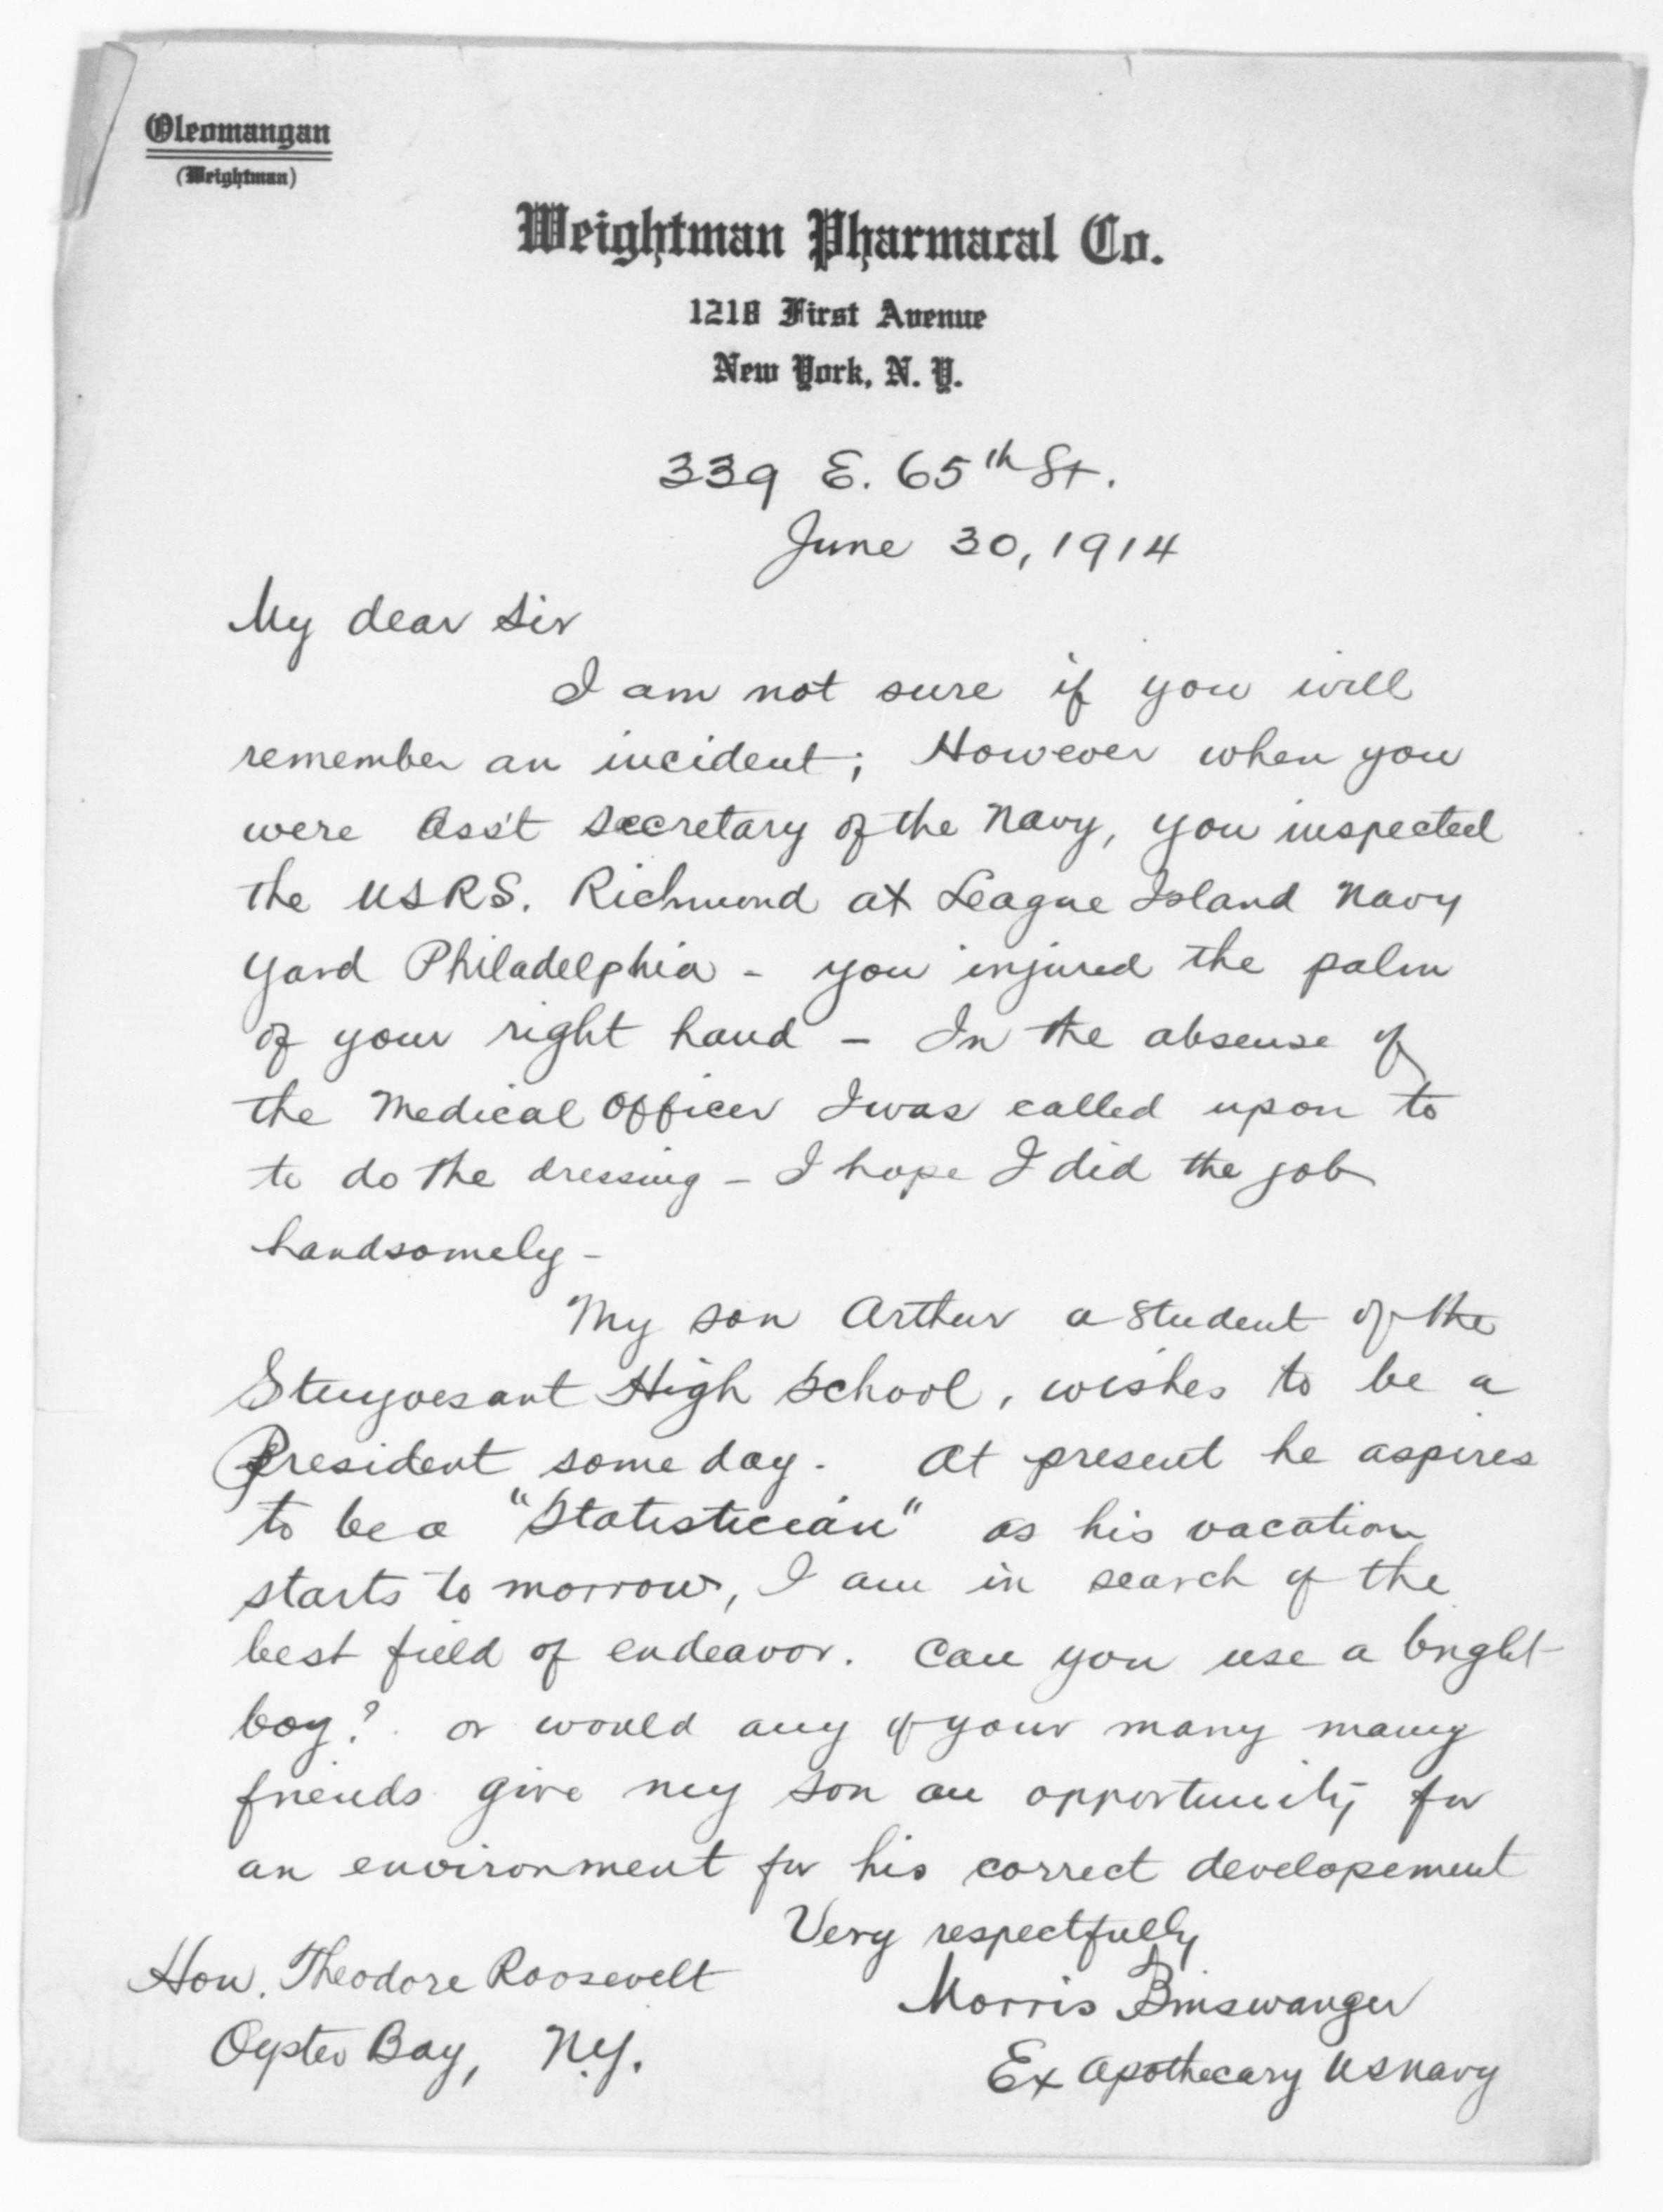 Oleomangan
(Weightman)
Weightman Pharmacal Co.
1218 First Avenue
New York, N. Y.
339 E. 65th St.
June 30, 1914
My dear Sir
I am not sure if you will
remember an incident; However when you
were Ass't Secretary of the Navy, you inspected
the USRS. Richmond at League Island Navy
Yard Philadelphia - you injured the palm
of your right hand - In the absense of
the Medical Officer I was called upon to
to do the dressing - I hope I did the job
handsomely -
My son Arthur a student of the
Stuyvesant High School, wishes to be a
President some day. At present he aspires
to be a "Statistician" as his vacation
starts to morrow, I am in search of the
best field of endeavor. Can you use a bright
boy? or would any of your many many
friends give my son an opportunity for
an environment for his correct developement
Very respectfully
Hon. Theodore Roosevelt
Oyster Bay, N.Y.
Morris Binswanger
Ex Apothecary US Navy